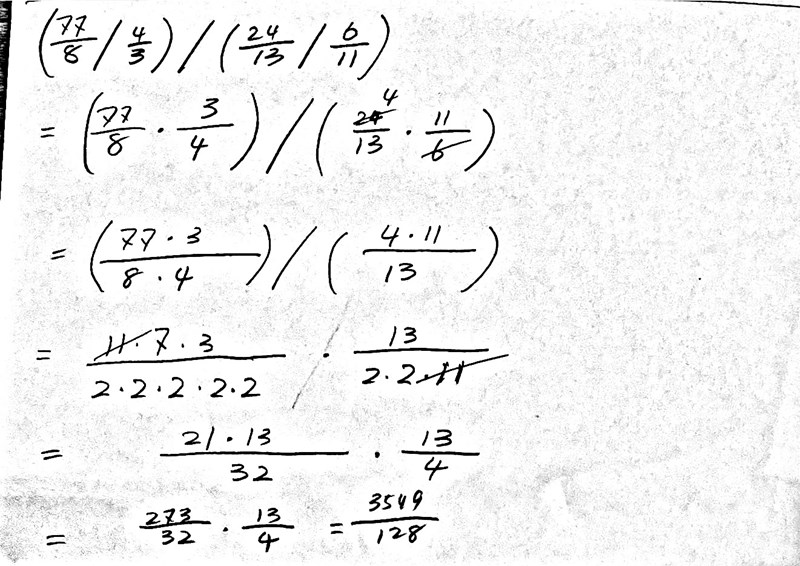 (77/8 / 4/3) / (24/13 / 6/11)
= (77/8 · 3/4) / (24/13 4 · 11/6)
= (77 · 3 / 8 · 4) / (4 · 11 / 13)
= 11 · 7 · 3 / 2 · 2 · 2 · 2 · 2 · 13 / 2 · 2 · 11
= 21 · 13 / 32 · 13/4
= 273/32 · 13/4 = 3549/128